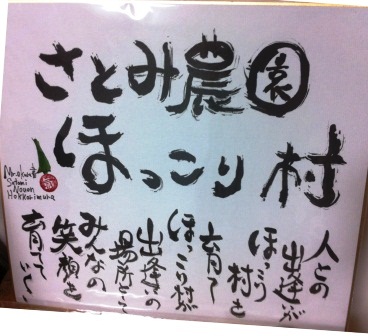 さとみ農園
ほっこり村
Satomi
Nouen
Hokkorimura
人との
出逢いが
ほっこり
村を
育て
ほっこり村が
出逢きの
場所として
みんなの
笑顔を
育てていく